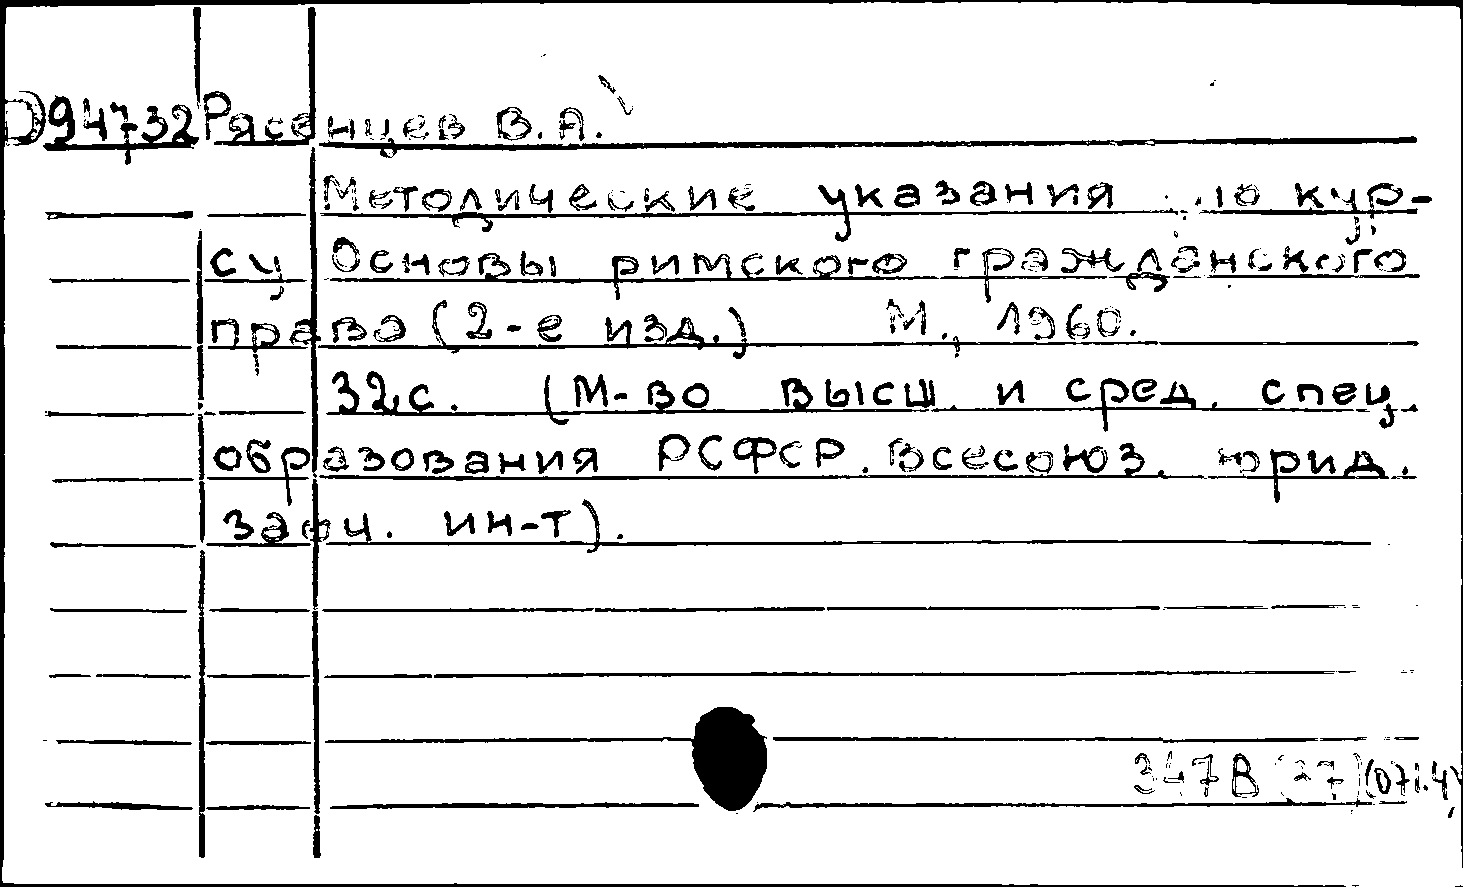 D94732 Рясенцев В.А.
Методические указания по кур-
су Основы римского гражданского
права (2-е изд.) М., 1960.
32 с. (М-во высш. и сред. спец.
образования РСФСР. Всесоюз. юрид.
заоч. ин-т).
347В (37)(071.4)